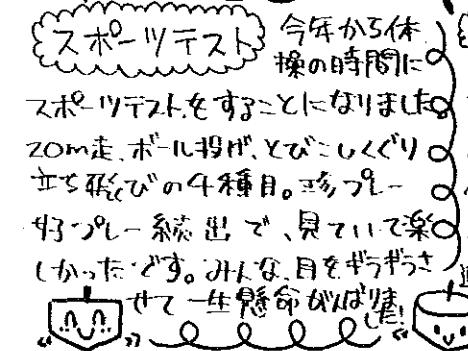 スポーツテスト
今年から体
操の時間に
スポーツテストをすることになりました。
20m走、ボール投げ、とびこしくぐり
立ち幅とびの4種目。珍プレー
好プレー続出で、見ていて楽
しかったです。みんな、目をギラギラさ
せて一生懸命がんばりま
した!